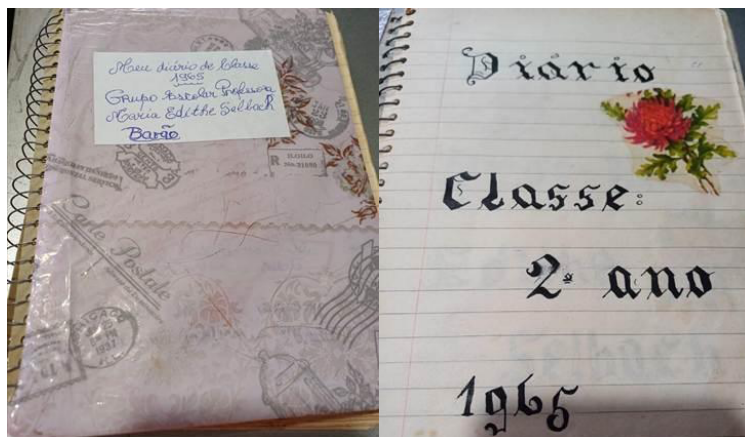 Meu diário de Classe
1965
Grupo Escolar Professora
Maria Edithe Selbach
Barão
Carte Postale
CHICAGO
R
Diário
Classe:
2º ano
1965